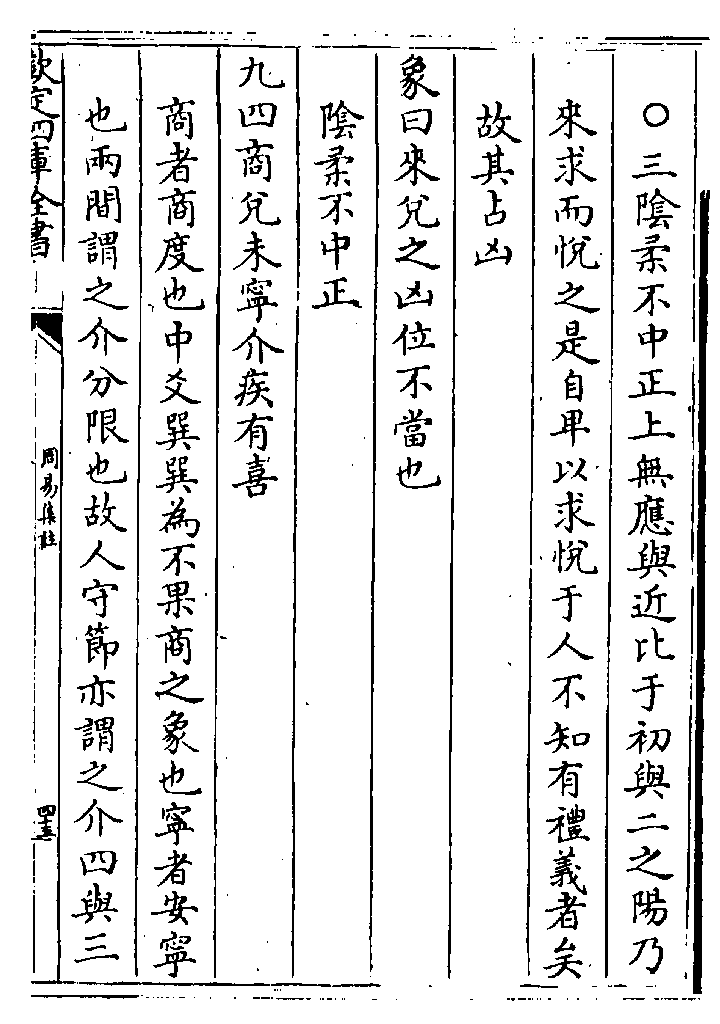 ○三陰柔不中正上無應與近比于初與二之陽乃
來求而悅之是自卑以求悅于人不知有禮義者矣
故其占凶
象曰來兌之凶位不當也
陰柔不中正
九四商兌未寧介疾有喜
商者商度也中爻巽巽為不果商之象也寧者安寧
也兩間謂之介分限也故人守節亦謂之介四與三
欽定四庫全書
周易集註
四十五